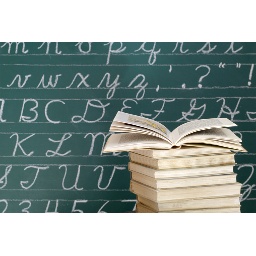 m n o p q r s t
v w x y z , ' . ? " " !
A B C D E F G H
K L M
S T U V
3 4 5 6